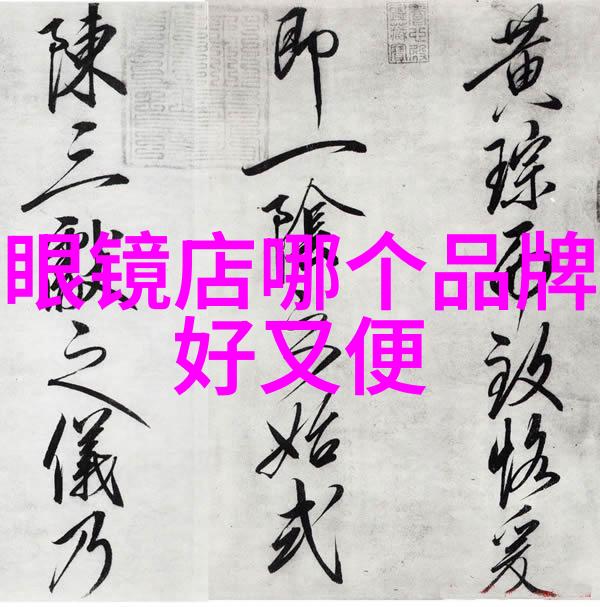 眼镜店哪个品牌
好又便
黄琮而致恪爰
即一陰始式
陳三獻之儀乃